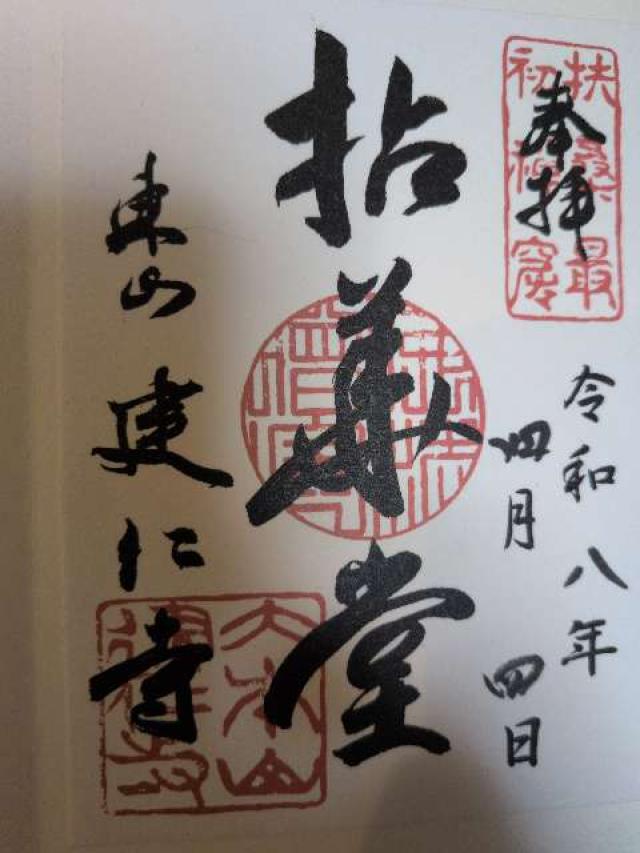 奉拝
扶桑最
初禅窟
令和八年
四月四日
拈華堂
東山建仁寺
大本山
建仁寺